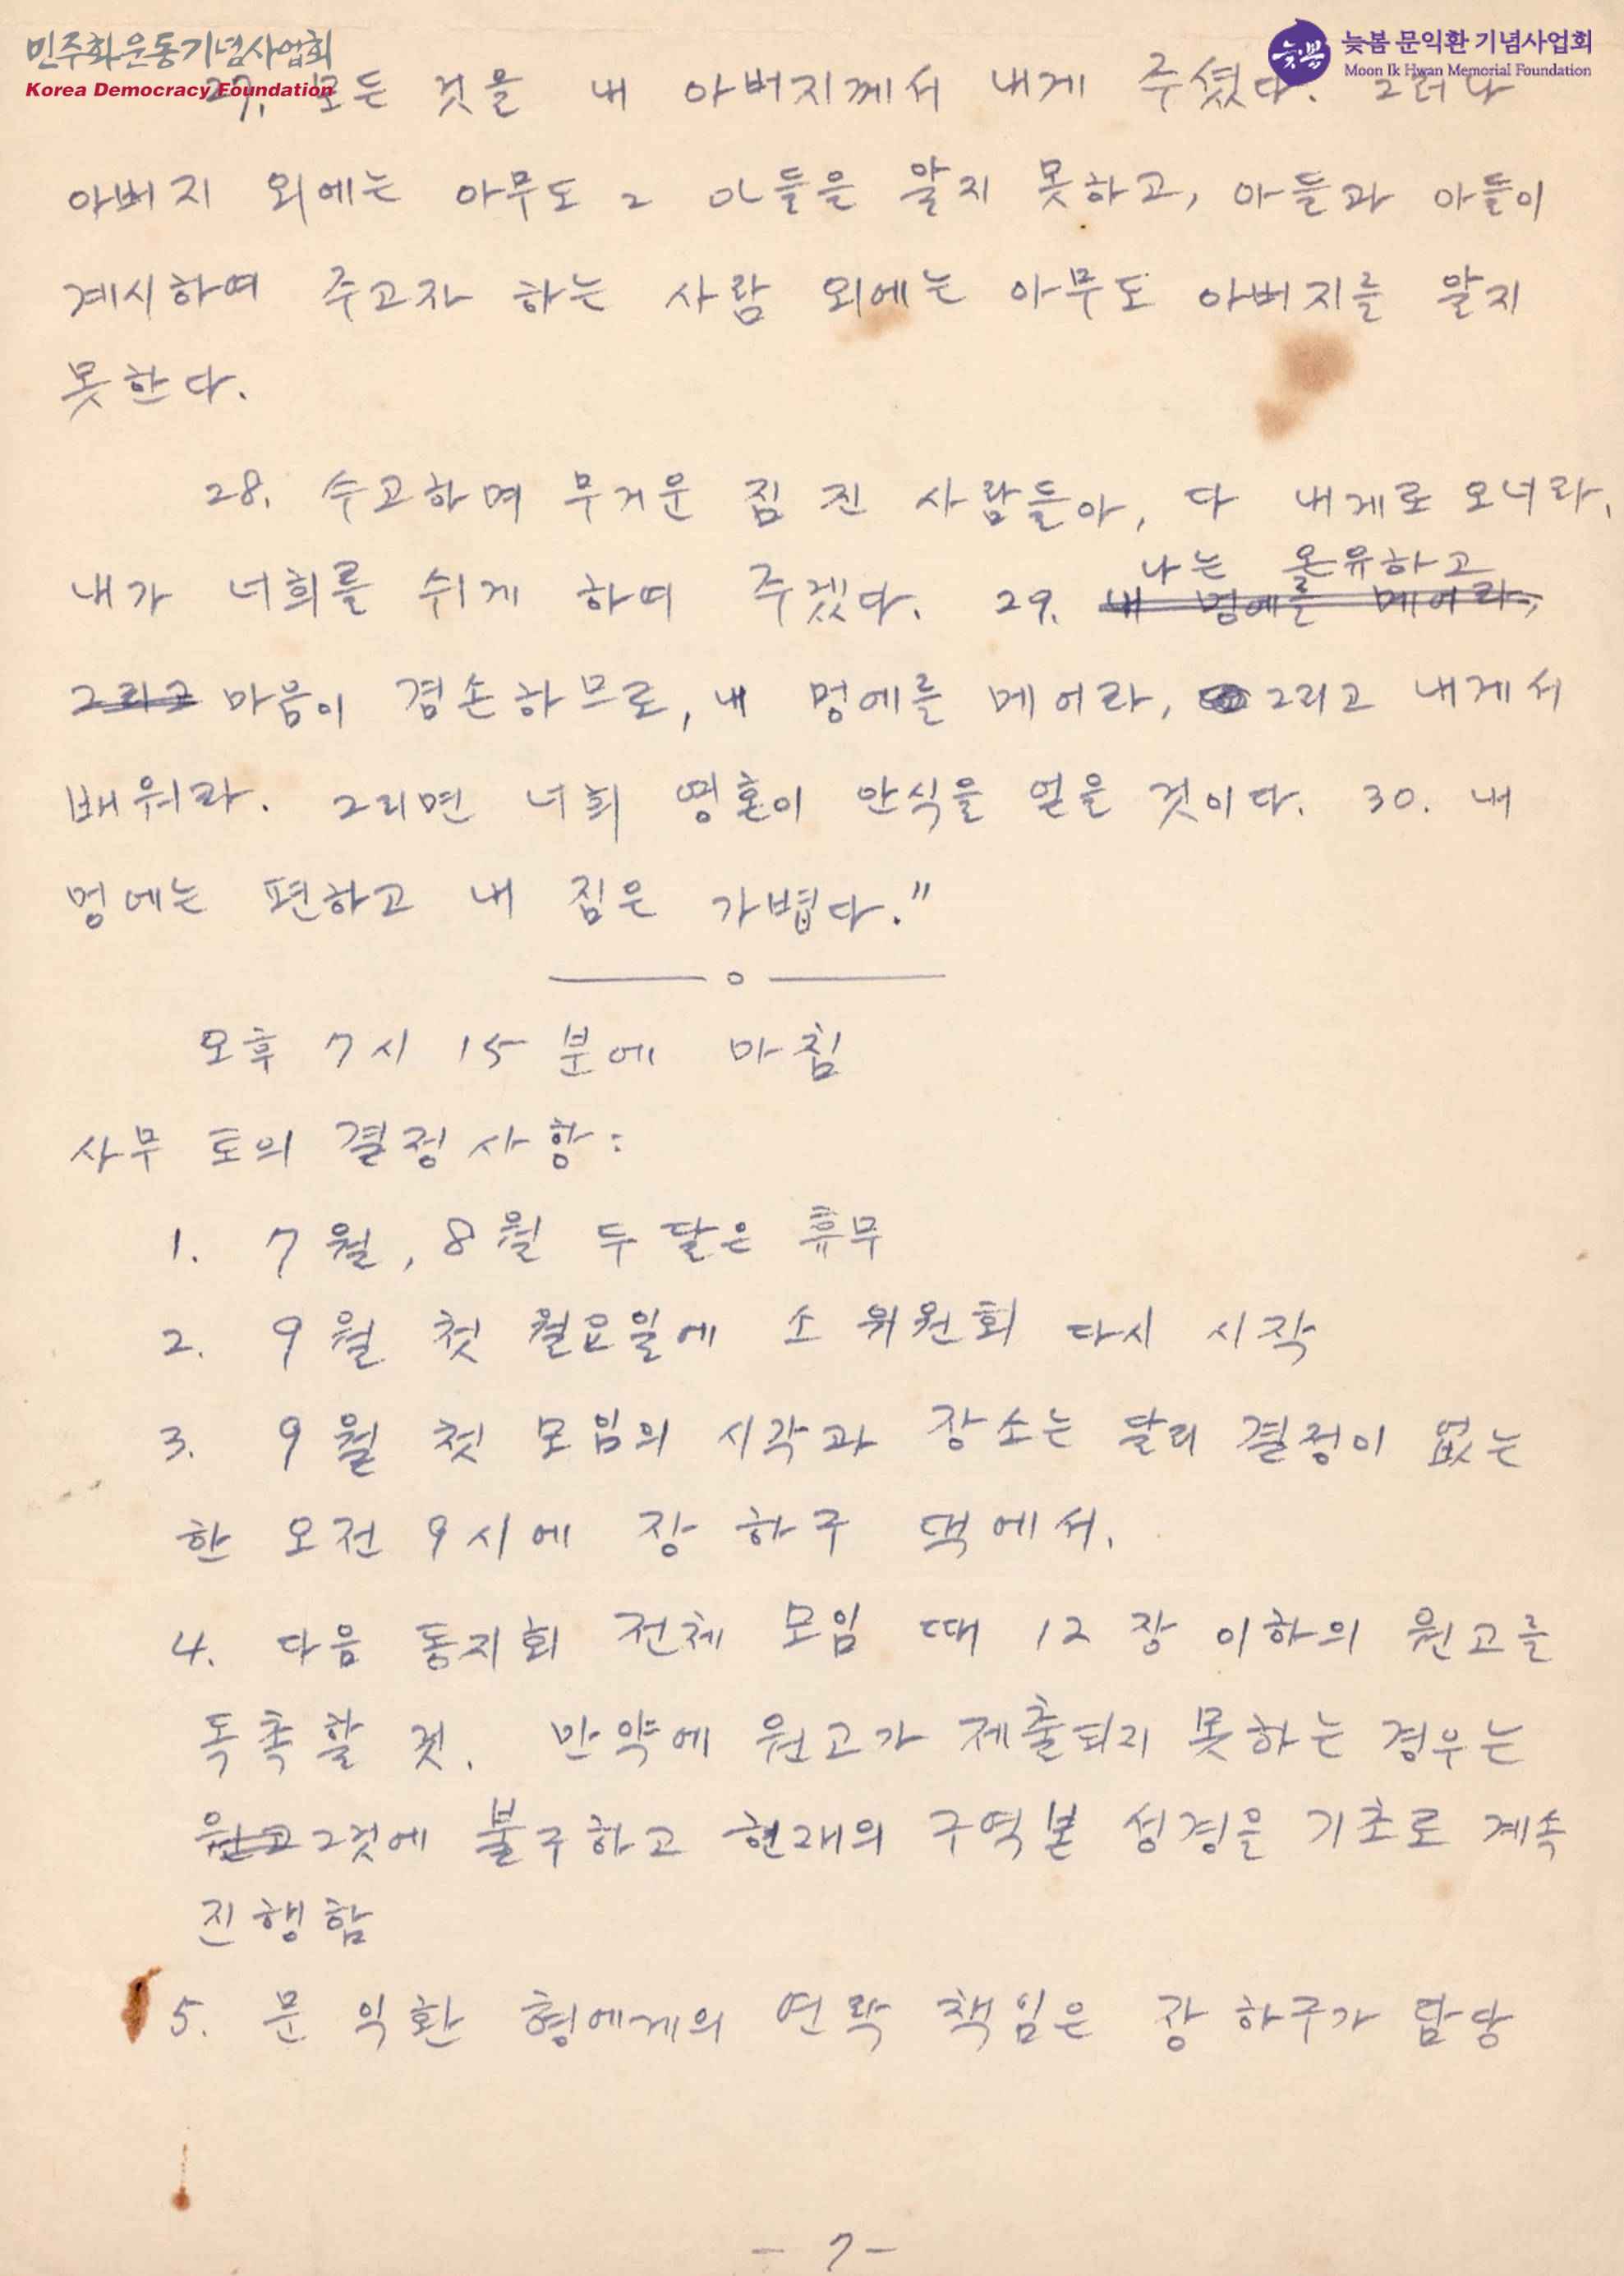 민주화운동기념사업회
Korea Democracy Foundation
늦봄
늦봄 문익환 기념사업회
Moon Ik Hwan Memorial Foundation
27. 모든 것을 내 아버지께서 내게 주셨다. 그러나
아버지 외에는 아무도 그 아들을 알지 못하고, 아들과 아들이
계시하여 주고자 하는 사람 외에는 아무도 아버지를 알지
못한다.
28. 수고하며 무거운 짐 진 사람들아, 다 내게로 오너라,
나는 온유하고
내가 너희를 쉬게 하여 주겠다. 29. 내 멍에를 메어라,
그리고 마음이 겸손하므로, 내 멍에를 메어라, 그리고 내게서
배워라. 그리면 너희 영혼이 안식을 얻을 것이다. 30. 내
멍에는 편하고 내 짐은 가볍다."
오후 7시 15분에 마침
사무 토의 결정사항:
1. 7월, 8월 두 달은 휴무
2. 9월 첫 월요일에 소 위원회 다시 시작
3. 9월 첫 모임의 시각과 장소는 달리 결정이 없는
한 오전 9시에 장 하구 댁에서.
4. 다음 동지회 전체 모임 때 12장 이하의 원고를
독촉할 것. 만약에 원고가 제출되지 못하는 경우는
원고 그것에 불구하고 현재의 구역본 성경을 기초로 계속
진행함
5. 문 익환 형에게의 연락 책임은 장 하구가 담당
- 7 -